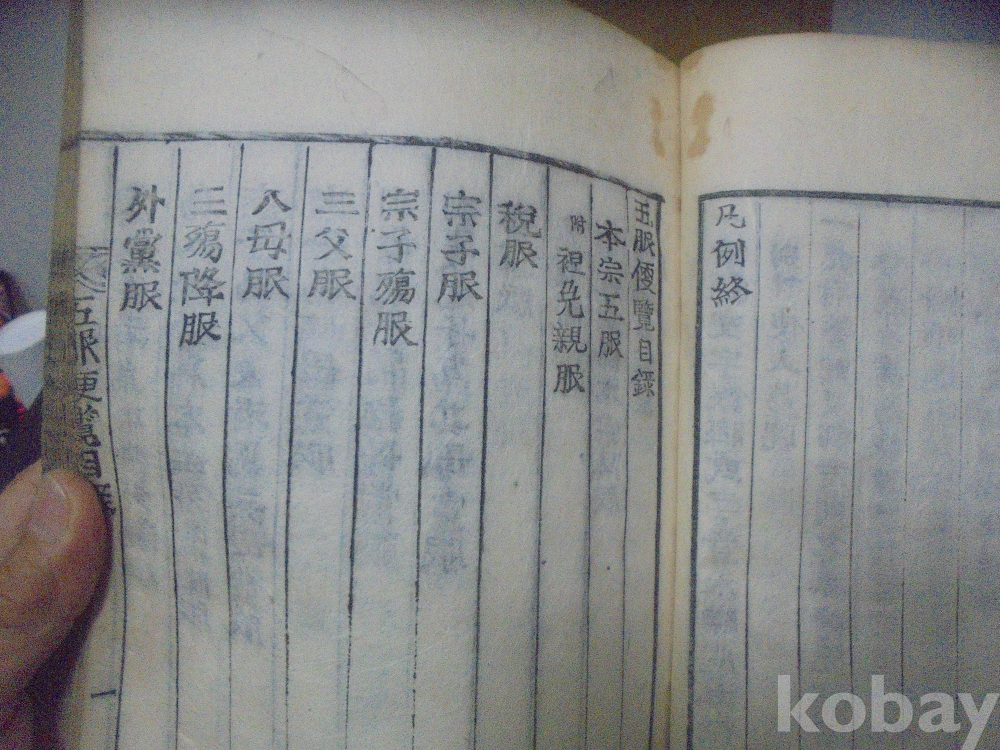 凡例終
五服便覽目錄
本宗五服
附 袒免親服
稅服
宗子服
宗子殤服
三父服
八母服
三殤降服
外黨服
五服便覽目
一
kobay